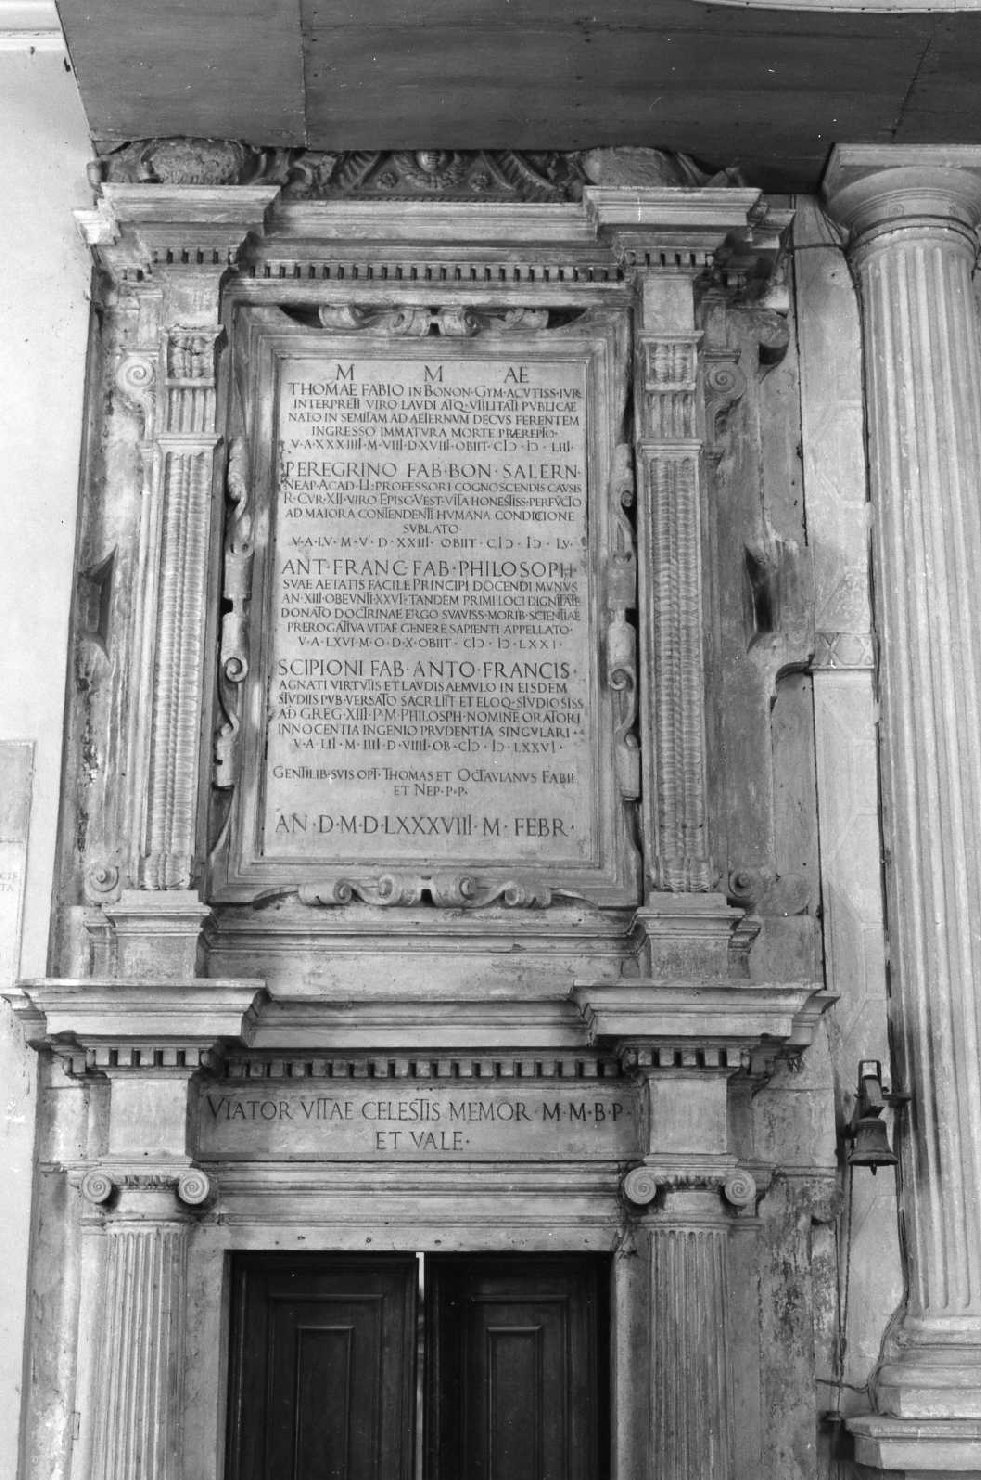 M M AE
THOMAE FABIO IN BONON·GYM·ACVTISS·IVR
INTERPRETI VIRO LAVDI ATQ·VTILITATI PVBLICAE
NATO IN SEMITAM AD AETERNVM DECVS FERENTEM
INGRESSO IMMATVRA MORTE PRAEREPTO
V·A·XXXIII·M·VIII·D·XVII·OBIIT·CIƆ·IƆ·LIII·
PEREGRINO FAB·BON·SALERN
NEAP·ACAD·LL·PROFESSORI COGNOSCENDIS CAVSIS
R·CVR·XII·VIRO EPISC·VEST·VITA HONESTISS·PERFVCTO
AD MAIORA CONTENDENTI HVMANA CONDICIONE
SVBLATO
V·A·LV·M·V·D·XXIII·OBIIT·CIƆ·IƆ·LX
ANT·FRANC·FAB·PHILOSOPH
SVAE AETATIS FACILE PRINCIPI AD HOC DOCENDI MVNVS
AN·XIII·OBEVNTI·XXVI·TANDEM PRIMI LOCI DIGNITATE
DONATO DOCTRINAE ERGO SVAVISS·MORIB·SCIENTIAE
PREROGATIVA VITAE GENERE SAPIENTI APPELLATO
V·A·LXVI·M·O·D·X·OBIIT·CIƆ·IƆ·LXXII
SCIPIONI FAB·ANTO·FRANCISCI
AGNATI VIRTVTIS ET LAVDIS AEMVLO IN EISDEM
STVDIIS PVB·VERSATO SACR·LITT·ET ELOQ·STVDIOSISS
AD GREG·XIII·P·M·PHILOSOPH·NOMINE ORATORI
INNOCENTIA INGENIO PRVDENTIA SINGVLARI
GENTILIBVS SVIS OPT·THOMAS ET OCTAVIANVS FABII
ET NEP·P·P
AN·D·M·DLXXVIII·M·FEBR·
VIATOR VITAE CELESTIS MEMOR M·M·B·P
ET VALE